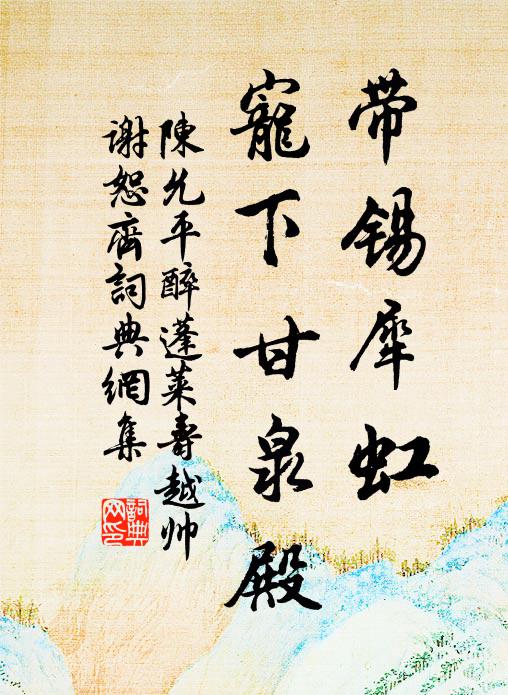 带锡犀虹
寵下甘泉殿
陳允平醉蓬萊壽越帅
谢恕齋詞典網集
詞典网印